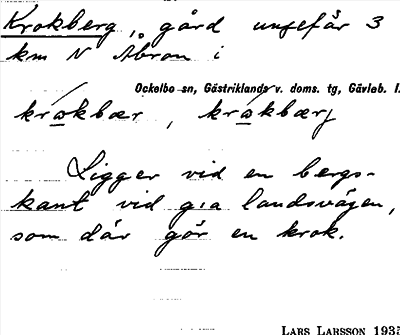 Krokberg, gård ungefär 3
km N Åbron i
Ockelbo sn, Gästriklands v. doms. tg, Gävleb. l.
krɷkbær, krɷkbærj
Ligger vid en bergs-
kant vid g:a landsvägen,
som där gör en krok.
LARS LARSSON 1935